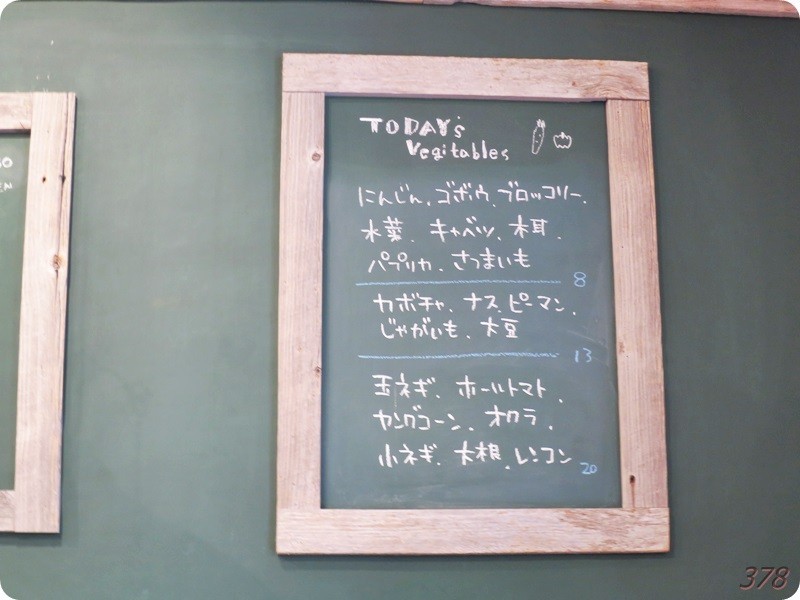 TODAY's
Vegitables
にんじん、ゴボウ、ブロッコリー、
水菜、キャベツ、木耳、
パプリカ、さつまいも
8
カボチャ、ナス、ピーマン、
じゃがいも、大豆
13
玉ネギ、ホールトマト、
ヤングコーン、オクラ、
小ネギ、大根、レンコン
20
378